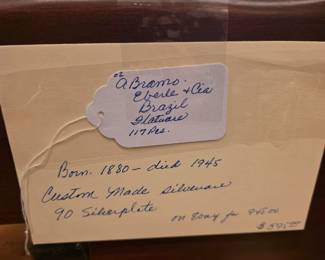 Abramo.
Eberle + Cia
Brazil
Flatware
117 Pcs.
Born. 1880 - died 1945
Custom Made silverware
90 Silverplate
on Ebay for 945.00
$595.00